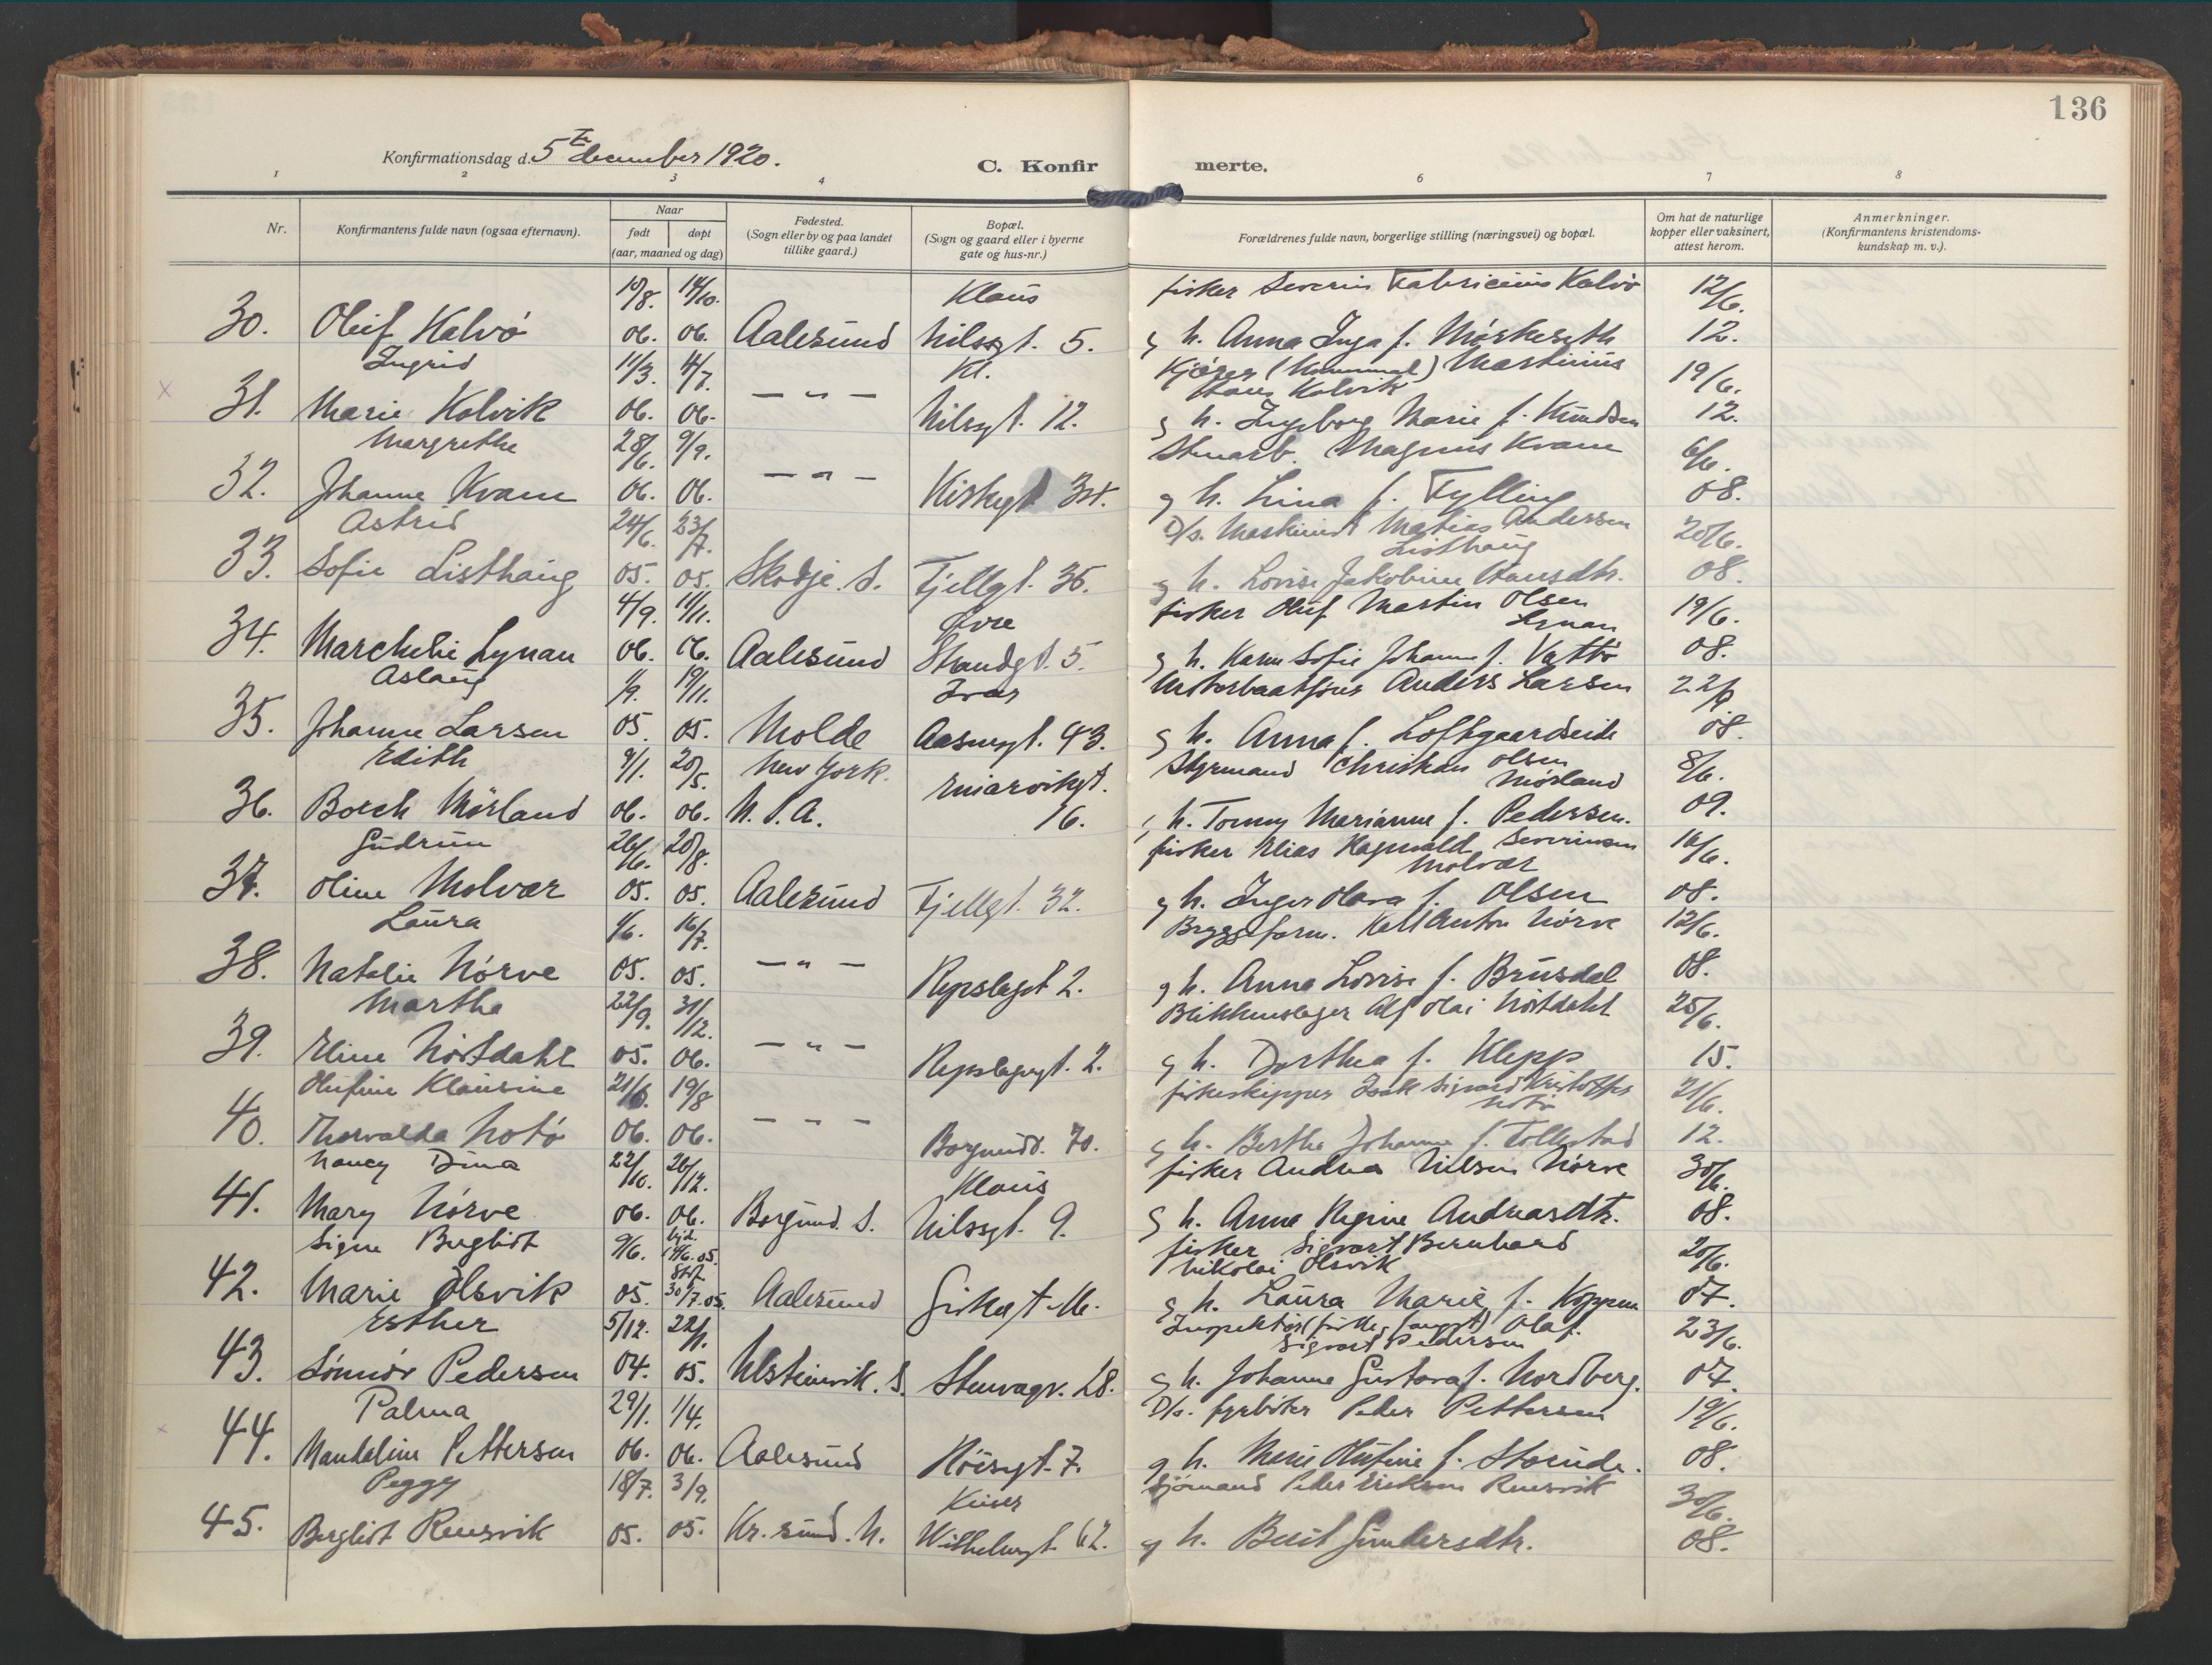 136
Konfirmationsdag d. 5te december 1920.
C. Konfirmerte.
1 2 3 4 6 7 8
Nr.
Konfirmantens fulde navn (ogsaa efternavn).
Naar
født døpt
(aar, maaned og dag)
Fødested.
(Sogn eller by og paa landet
tillike gaard.)
Bopæl.
(Sogn og gaard eller i byerne
gate og hus-nr.)
Forældrenes fulde navn, borgerlige stilling (næringsvei) og bopæl.
Om hat de naturlige
kopper eller vaksinert,
attest herom.
Anmerkninger.
(Konfirmantens kristendoms-
kundskap m. v.).
10/8. 14/10. Klaus fisker Severin Fabricius Kalvø 12/6.
30. Oluf Kalvø 06. 06. Aalesund Nilsgt. 5. g h. Anna Inga f. Mørkeseth 12.
Ingrid 11/3. 4/7. Kl. Kjører (Kommunal) Martinius 19/6.
Hans Kolvik
31. Marie Kolvik 06. 06. — " — Nilsgt. 12. g h. Ingeborg Marie f. Knudsen 12.
Margrethe 28/6. 9/9. Stenarb. Magnus Kvam 6/6.
32. Johanne Kvam 06. 06. — " — Kirkegt. g h. Lina f. Fylling 08.
Astrid 24/6. 23/7. D/s. Maskinist Matias Andersen 20/6.
Listhaug
33. Sofie Listhaug 05. 05. Skodje. S. Fjellgt. 36. g h. Lovise Jakobine Hansdtr. 08.
4/9. 11/11. Øvre fisker Oluf Martin Olsen 19/6.
Lynau
34. Marchelie Lynau 06. 06. Aalesund Strandgt. 5. g h. Karen Sofie Johanne f. Vattø 08.
Aslaug 1/9. 19/11. Ivar Motorbaatfører Anders Larsen 22/9
35. Johanne Larsen 05. 05. Molde Aasensgt. 43. g h. Anna f. Loftgaardseide 08.
Edith 9/1. 20/5. New York. Styrmand Christian Olsen 8/6.
Mørland
36. Borch Mørland 06. 06. U. S. A. 16. h. Tommy Marianne f. Pedersen. 09.
Gudrun 26/6. 20/8. fisker Elias Ragnvald Severinsen 16/6.
Molvær
37. Oline Molvær 05. 05. Aalesund Fjellgt. 32. g h. Inger Olava f. Olsen 08.
Laura 1/6. 16/7. Bryggeform. Karl Anton Nørve 12/6.
38. Natalie Nørve 05. 05. — " — Repslagt 2. g h. Anna Lovise f. Brusdal 08.
Martha 22/9. 31/12. Blikkenslager Alf Olai Nostdahl 25/6.
39. Eline Nostdahl 05. 06. — " — Repslagergt. 2. g h. Dorthea f. Klepp 15.
Olufine Klausine 21/6. 19/8 fiskeskipper Isak Sigvard Kristoffer 21/6.
Notø
40. Thorvalda Notø 06. 06. — " — Borgundv. 70. g h. Berthe Johanne f. Tollestad 12.
Nancy Dina 22/10. 26/12. Klaus fisker Andrea Nilsen Nørve 30/6.
41. Mary Nørve 06. 06. Borgund. S. Nilsgt. 9. g h. Anne Regine Andreasdtr. 08.
Signe Bergliot 9/6. hjd. 14/6. 05. fisker Sigvart Bernhard 20/6.
Nikolai Olsvik
42. Marie Olsvik 05. 30/7. 05. Aalesund g h. Laura Marie f. Koppen 07.
Esther 5/12. 22/1. Inspektør Olaf 23/6.
Sigvart Pedersen
43. Sønnøv Pedersen 04. 05. Ulsteinvik. S. Stenvagv. 28. g h. Johanne Gustava f. Nordberg. 07.
Palma 29/1. 1/4. D/s. fyrbøter Peder Pettersen 19/6.
44. Mandeline Pettersen 06. 06. Aalesund Høisgt. 7. g h. Olufine f. Storeide. 08.
Peggy 18/7. 3/9. Keiser Sjømand Peder Eriksen Rensvik 30/6.
45. Bergliot Rensvik 05. 05. Kr. sund. N. Wilhelmsgt. 62. g h. Berit Gundersdtr. 08.